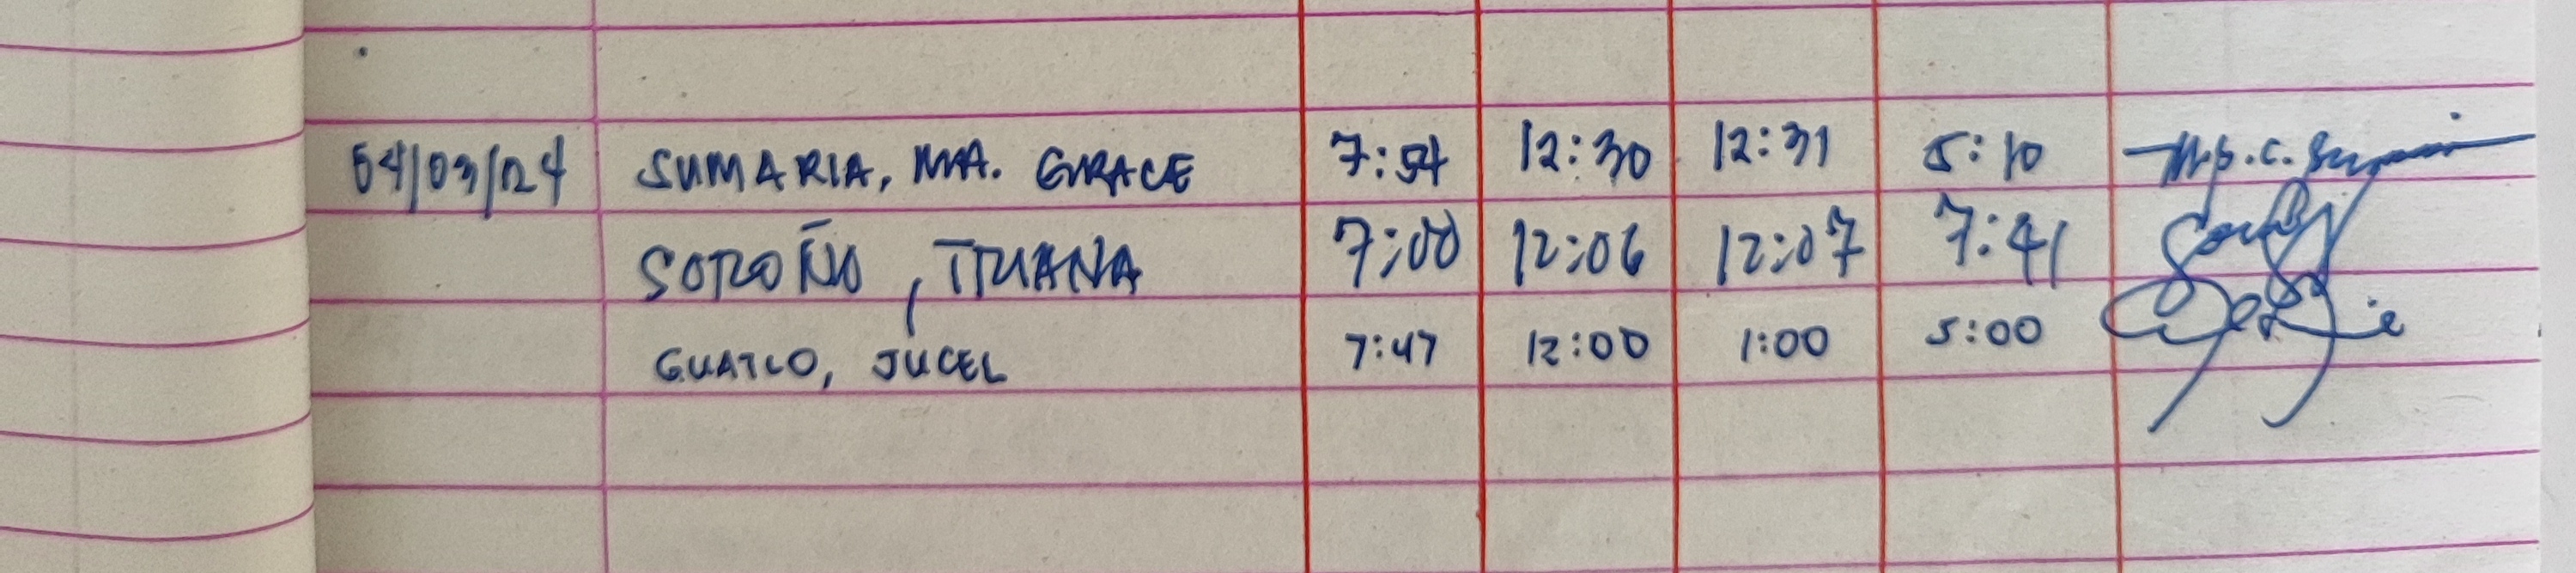 04/03/24 SUMARIA, MA. GRACE 7:54 12:30 12:31 5:10
SOROÑO, TRIANA 7:00 12:06 12:07 7:41
GUATLO, JUCEL 7:47 12:00 1:00 5:00